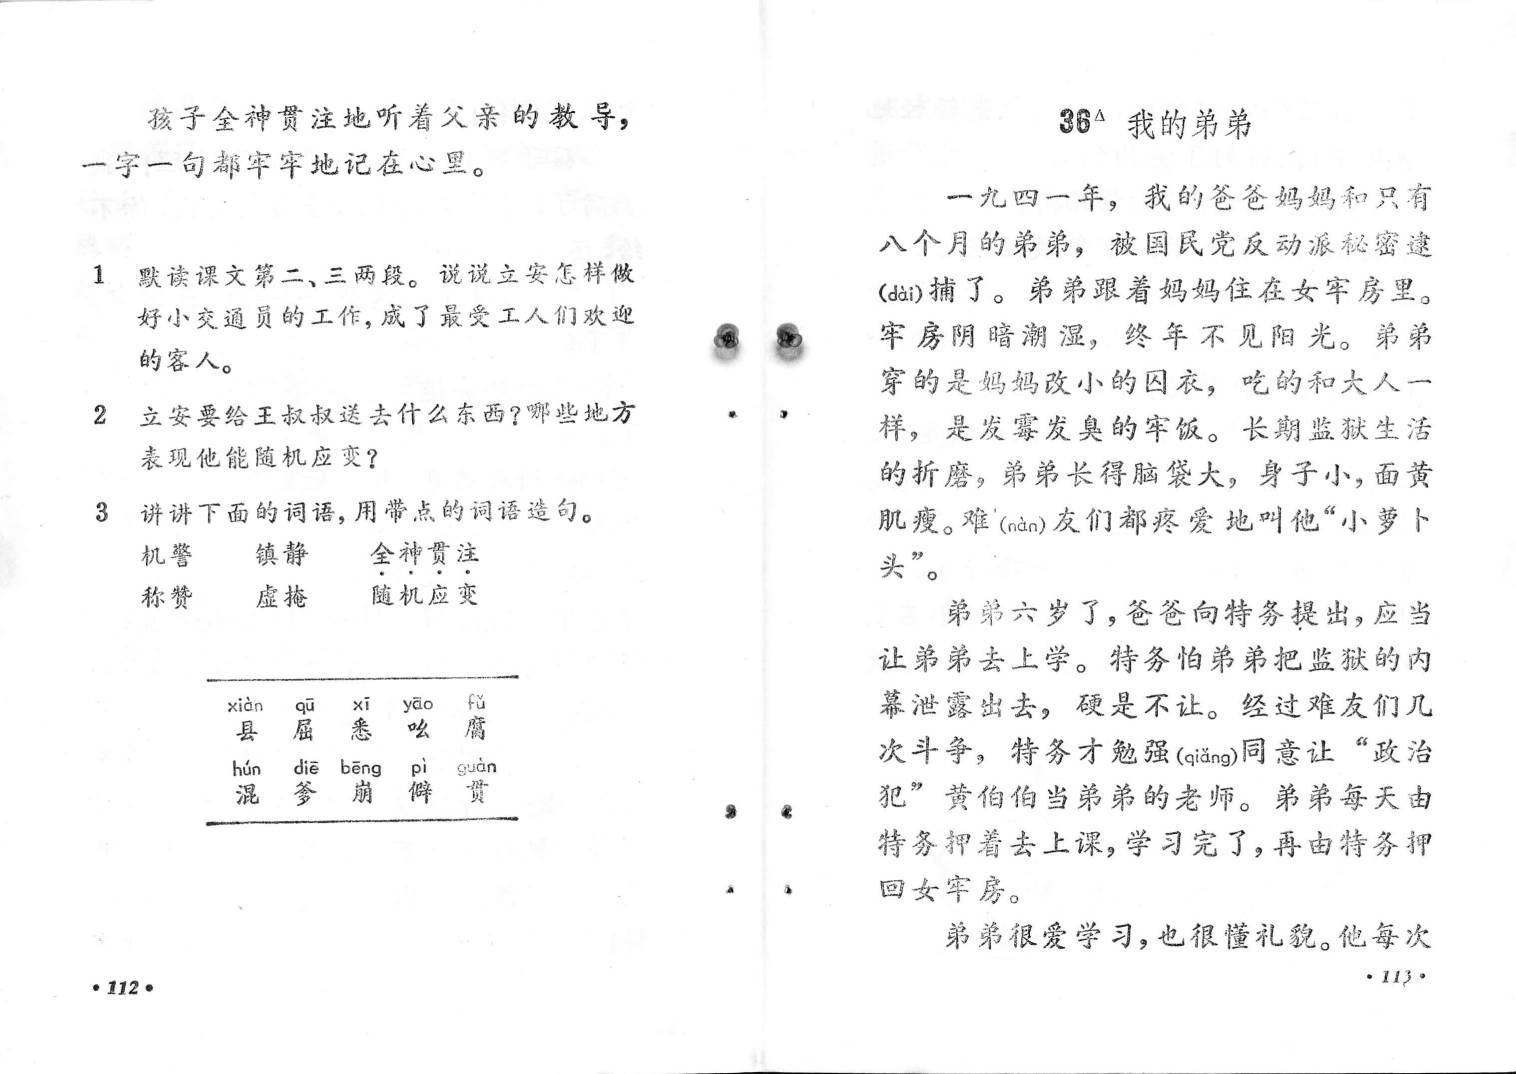 孩子全神贯注地听着父亲的教导，
一字一句都牢牢地记在心里。
1 默读课文第二、三两段。说说立安怎样做
好小交通员的工作，成了最受工人们欢迎
的客人。
2 立安要给王叔叔送去什么东西？哪些地方
表现他能随机应变？
3 讲讲下面的词语，用带点的词语造句。
机警 镇静 全神贯注
称赞 虚掩 随机应变
xiàn qū xī yāo fǔ
县 屈 悉 吆 腐
hún diē bēng pì guàn
混 爹 崩 僻 贯
·112·
36△ 我的弟弟
一九四一年，我的爸爸妈妈和只有
八个月的弟弟，被国民党反动派秘密逮
(dài)捕了。弟弟跟着妈妈住在女牢房里。
牢房阴暗潮湿，终年不见阳光。弟弟
穿的是妈妈改小的囚衣，吃的和大人一
样，是发霉发臭的牢饭。长期监狱生活
的折磨，弟弟长得脑袋大，身子小，面黄
肌瘦。难(nàn)友们都疼爱地叫他“小萝卜
头”。
弟弟六岁了，爸爸向特务提出，应当
让弟弟去上学。特务怕弟弟把监狱的内
幕泄露出去，硬是不让。经过难友们几
次斗争，特务才勉强(qiǎng)同意让“政治
犯”黄伯伯当弟弟的老师。弟弟每天由
特务押着去上课，学习完了，再由特务押
回女牢房。
弟弟很爱学习，也很懂礼貌。他每次
·113·